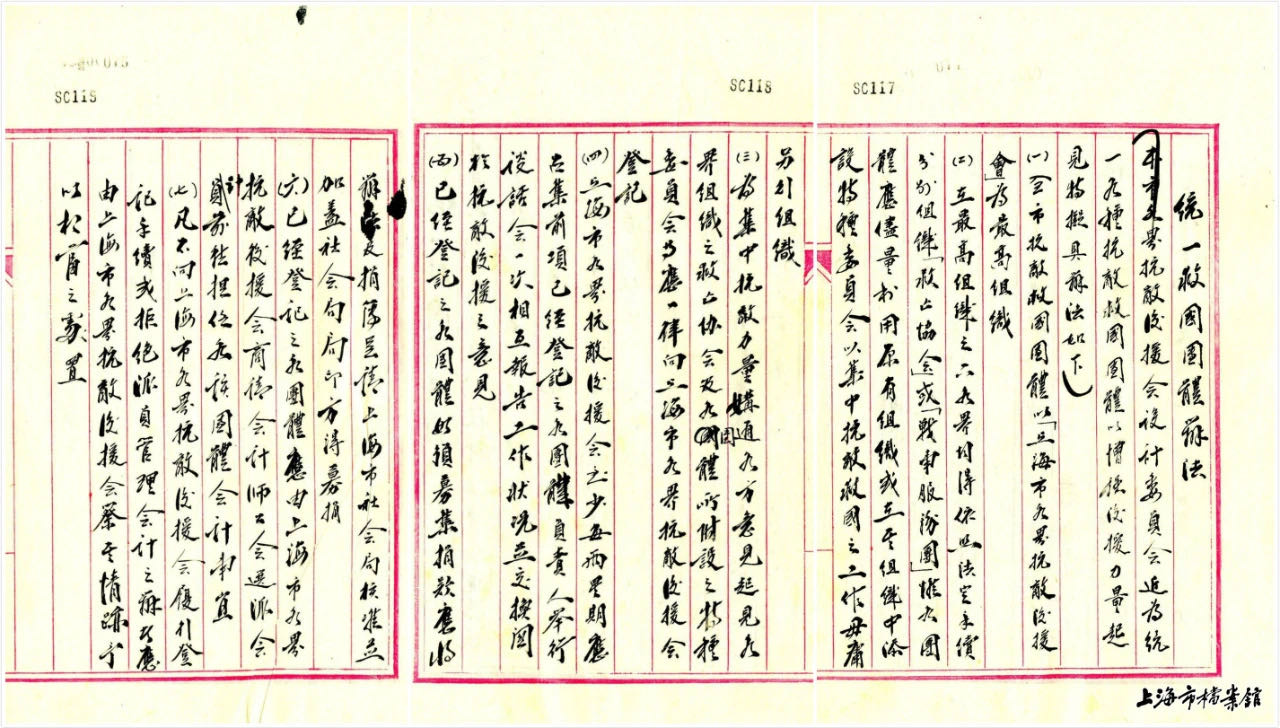 SC117
统一救国团体办法
本市各界抗敌后援会设计委员会迳为统
一各种抗敌救国团体以增强后援力量起
见特拟具办法如下
(一)全市抗敌救国团体以「上海市各界抗敌后援
会」为最高组织
(二)在最高组织之下各界均得依照法定手续
分别组织「救亡协会」或「战时服务团」惟各团
体应尽量利用原有组织或在其组织中添
设特种委员会以集中抗敌救国之工作毋庸
SC118
另行组织
(三)为集中抗敌力量沟通各方意见起见各
界组织之救亡协会及各团体所附设之特种
委员会等应一律向上海市各界抗敌后援会
登记
(四)上海市各界抗敌后援会至少每两星期应
召集前项已经登记之各团体负责人举行
谈话会一次相互报告工作状况并交换关
于抗敌后援之意见
(五)已经登记之各团体如须募集捐款应将
SC119
办法及捐簿呈请上海市社会局核准并
加盖社会局局印方得募捐
(六)已经登记之各团体应由上海市各界
抗敌后援会商请会计师公会选派会
计前往担任各该团体会计事宜
(七)凡不向上海市各界抗敌后援会履行登
记手续或拒绝派员管理会计之办法应
由上海市各界抗敌后援会察其情迹予
以相当之处置
上海市档案馆